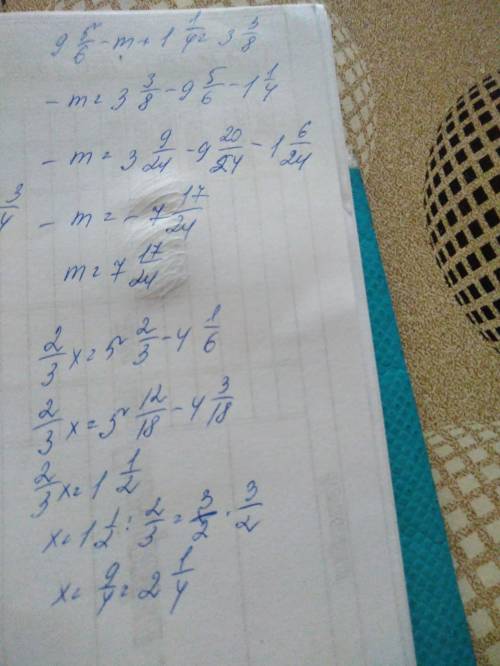 9 5/6 - m + 1 1/4 = 3 3/8
- m = 3 3/8 - 9 5/6 - 1 1/4
- m = 3 9/24 - 9 20/24 - 1 6/24
3/4
- m = - 7 17/24
m = 7 17/24
2/3 x = 5 2/3 - 4 1/6
2/3 x = 5 12/18 - 4 3/18
2/3 x = 1 1/2
x = 1 1/2 : 2/3 = 3/2 · 3/2
x = 9/4 = 2 1/4